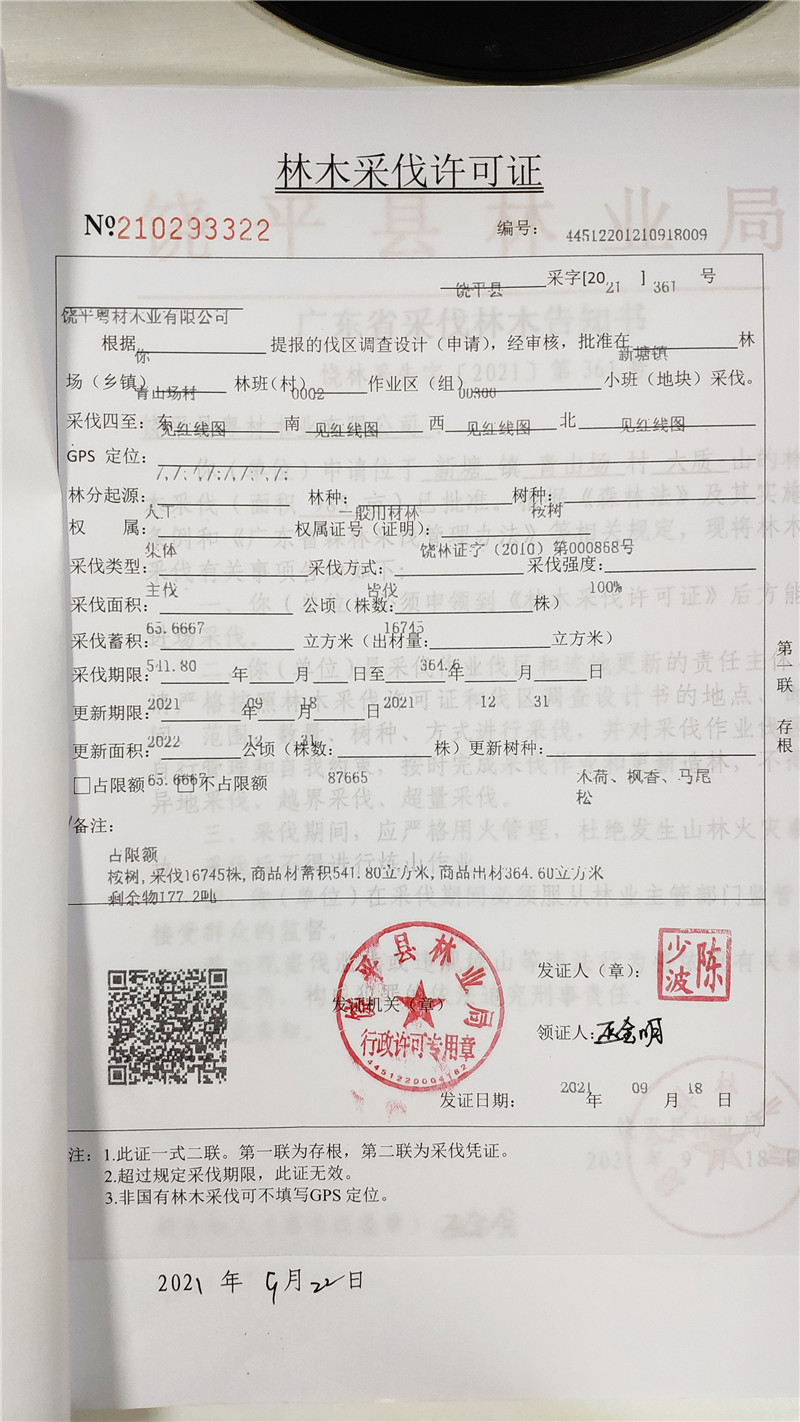 林木采伐许可证
№210293322 编号: 44512201210918009
饶平县 采字[2021] 361 号
饶平粤材木业有限公司
根据 你 提报的伐区调查设计（申请），经审核，批准在 新塘镇 林
场（乡镇） 青山场村 林班（村） 0002 作业区（组） 00300 小班（地块）采伐。
采伐四至: 东 见红线图 南 见红线图 西 见红线图 北 见红线图
GPS 定位: /,/;/,/;/,/;/,/;
林分起源: 人工 林种: 一般用材林 树种: 桉树
权 属: 集体 权属证号（证明）: 饶林证字（2010）第000868号
采伐类型: 主伐 采伐方式: 皆伐 采伐强度: 100%
采伐面积: 65.6667 公顷（株数: 16745 株）
采伐蓄积: 541.80 立方米（出材量: 364.6 立方米）
采伐期限: 2021 年 09 月 18 日至 2021 年 12 月 31 日
更新期限: 2022 年 12 月 31 日
更新面积: 65.6667 公顷（株数: 87665 株）更新树种: 木荷、枫香、马尾
松
□占限额 □不占限额
备注:
占限额
桉树,采伐16745株,商品材蓄积541.80立方米,商品出材364.60立方米
剩余物177.2吨
第一联 存根
饶平县林业局
行政许可专用章
4451220004182
发证机关（章）
发证人（章）: 陈少波
领证人:
发证日期: 2021 年 09 月 18 日
注: 1.此证一式二联。第一联为存根，第二联为采伐凭证。
2.超过规定采伐期限，此证无效。
3.非国有林木采伐可不填写GPS 定位。
2021 年 9月22日